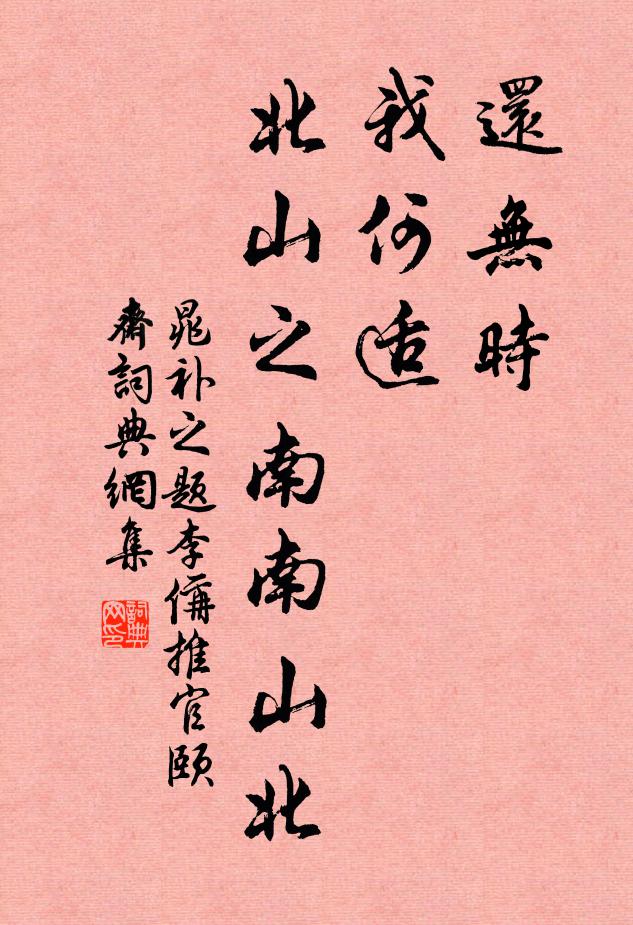 還無時
我何适
北山之南南山北
晁补之题李偁推官颐
齋詞典網集
詞典网印